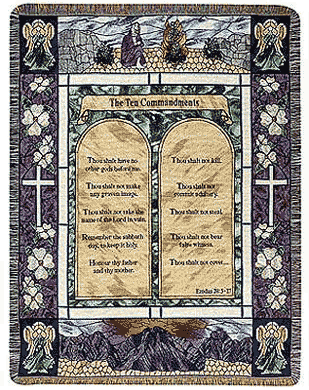 The Ten Commandments
Thou shalt have no
other gods before me.
Thou shalt not make
any graven image.
Thou shalt not take the
name of the Lord in vain.
Remember the sabbath
day, to keep it holy.
Honour thy father
and thy mother.
Thou shalt not kill.
Thou shalt not
commit adultery.
Thou shalt not steal.
Thou shalt not bear
false witness.
Thou shalt not covet....
Exodus 20:3-17